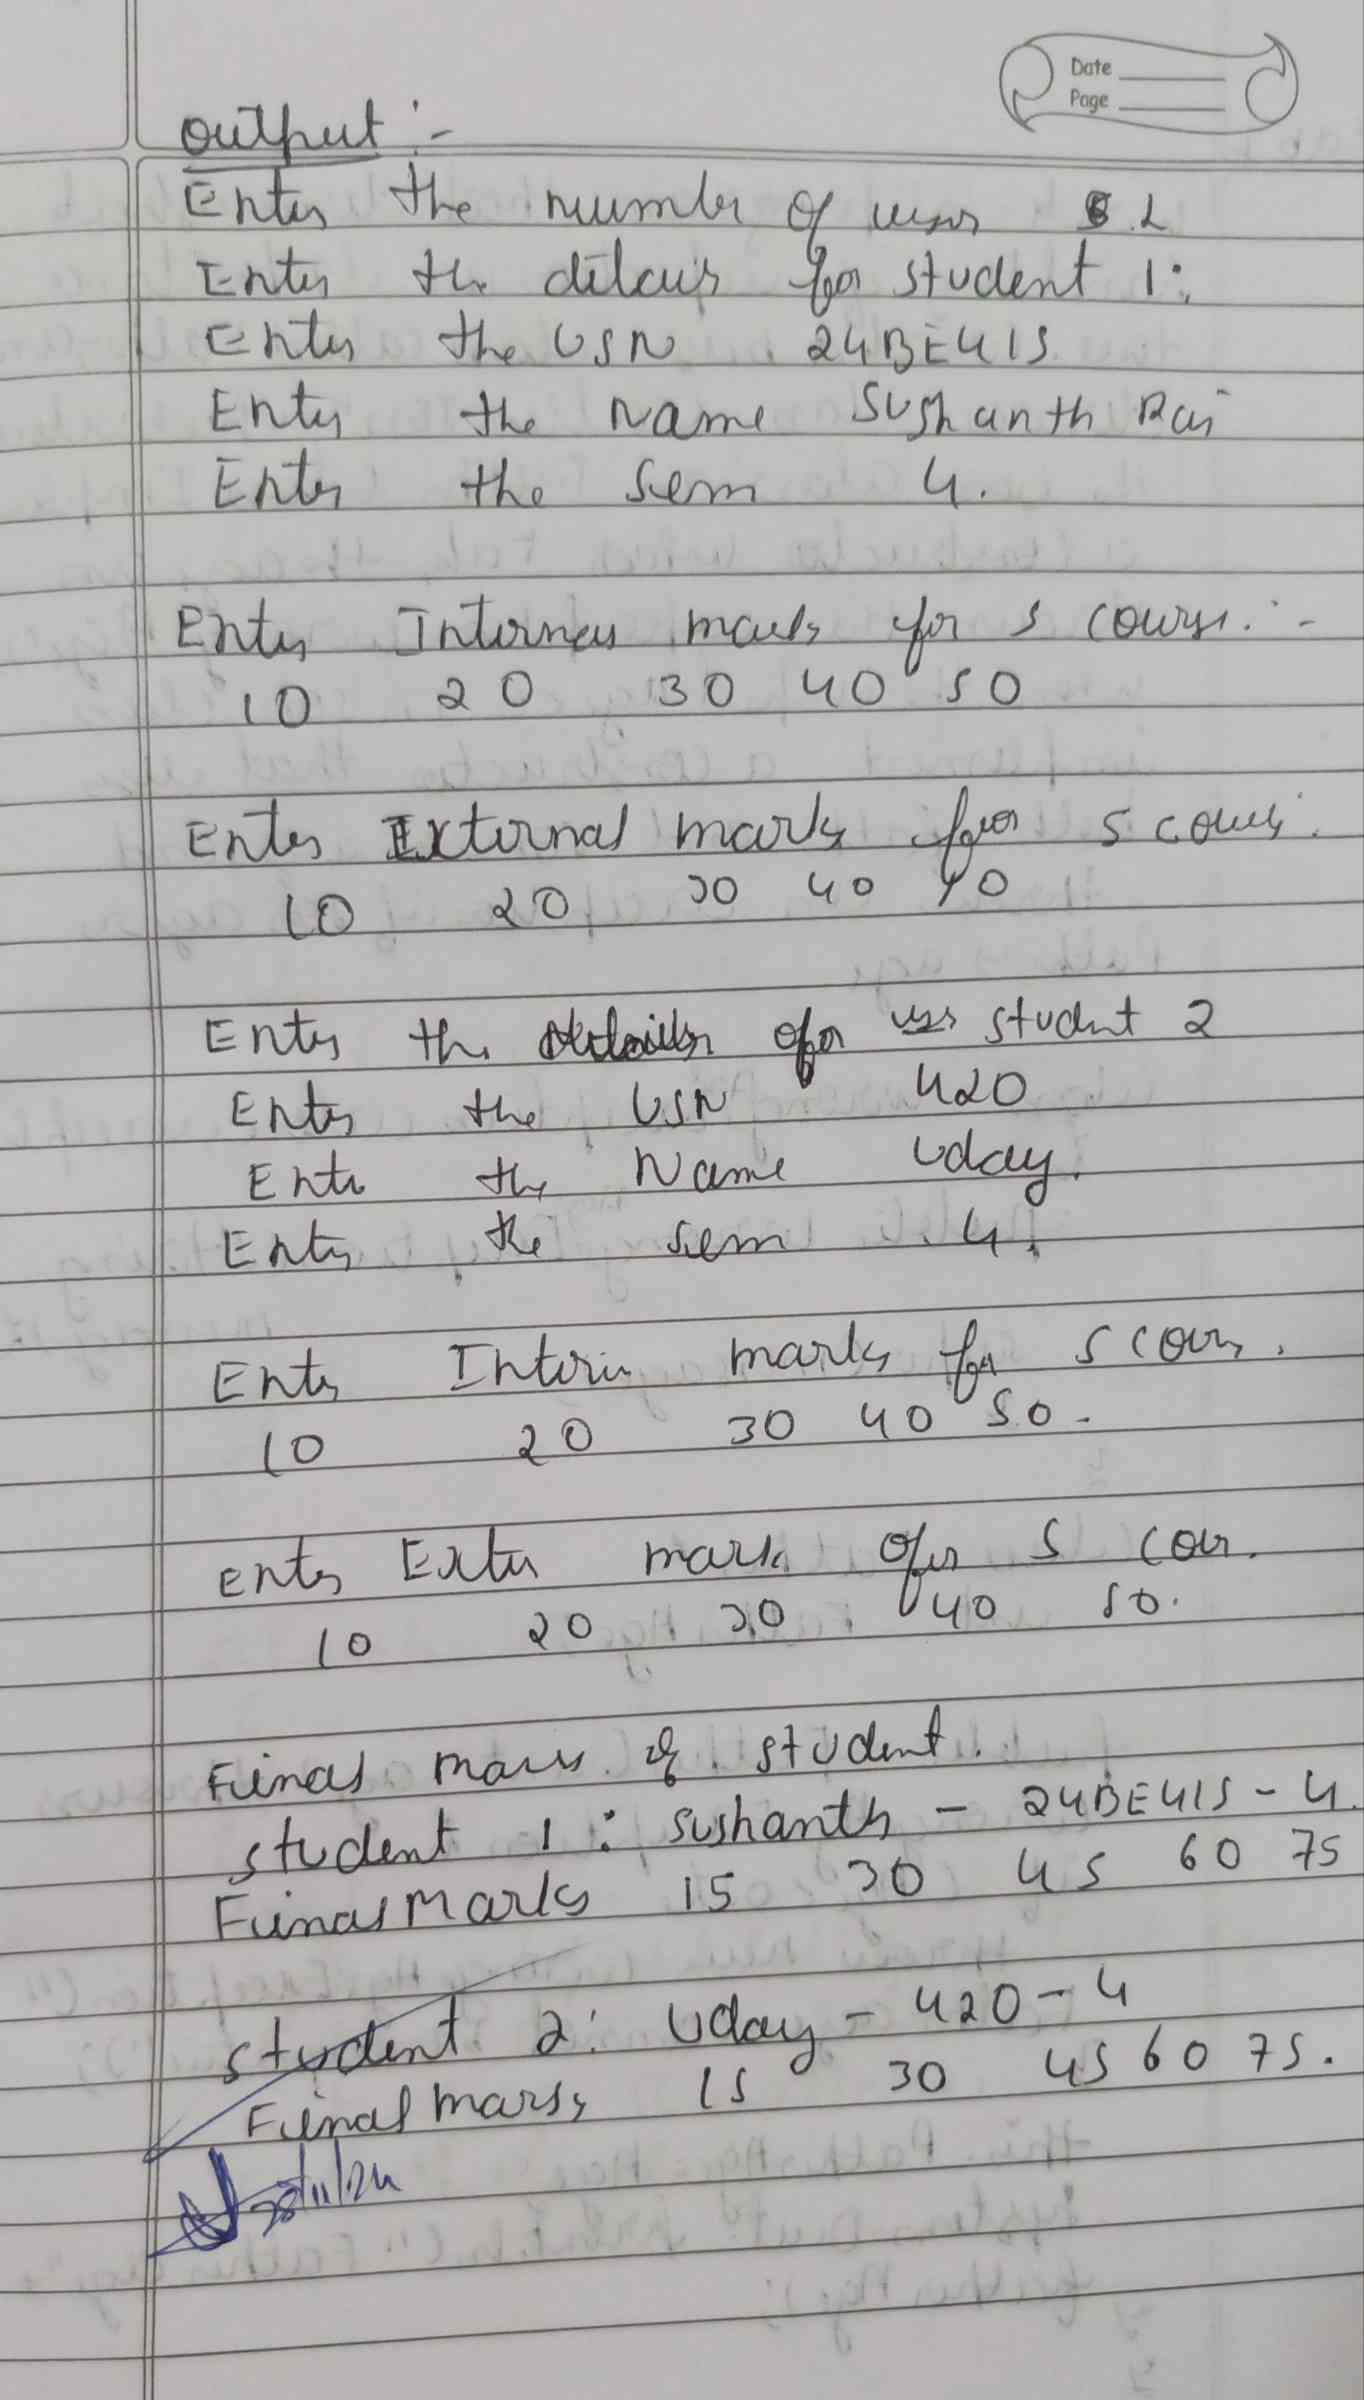 Date
Page
output :-
Enter the number of users 2
Enter the details for student 1:
Enter the USN 24BE415
Enter the Name Sushanth Rai
Enter the sem 4.
Enter Internal marks for 5 course :-
10 20 30 40 50
Enter External marks for 5 cours.
10 20 30 40 50
Enter the details for student 2
Enter the USN 420
Enter the Name Uday.
Enter the sem 4.
Enter Intern marks for 5 cours.
10 20 30 40 50.
enter Exter mark for 5 cour.
10 20 30 40 50.
Final marks of student.
student 1 : sushanth - 24BE415 - 4.
Final Marks 15 30 45 60 75
student 2: Uday - 420 - 4
Final marks 15 30 45 60 75.
28/11/24